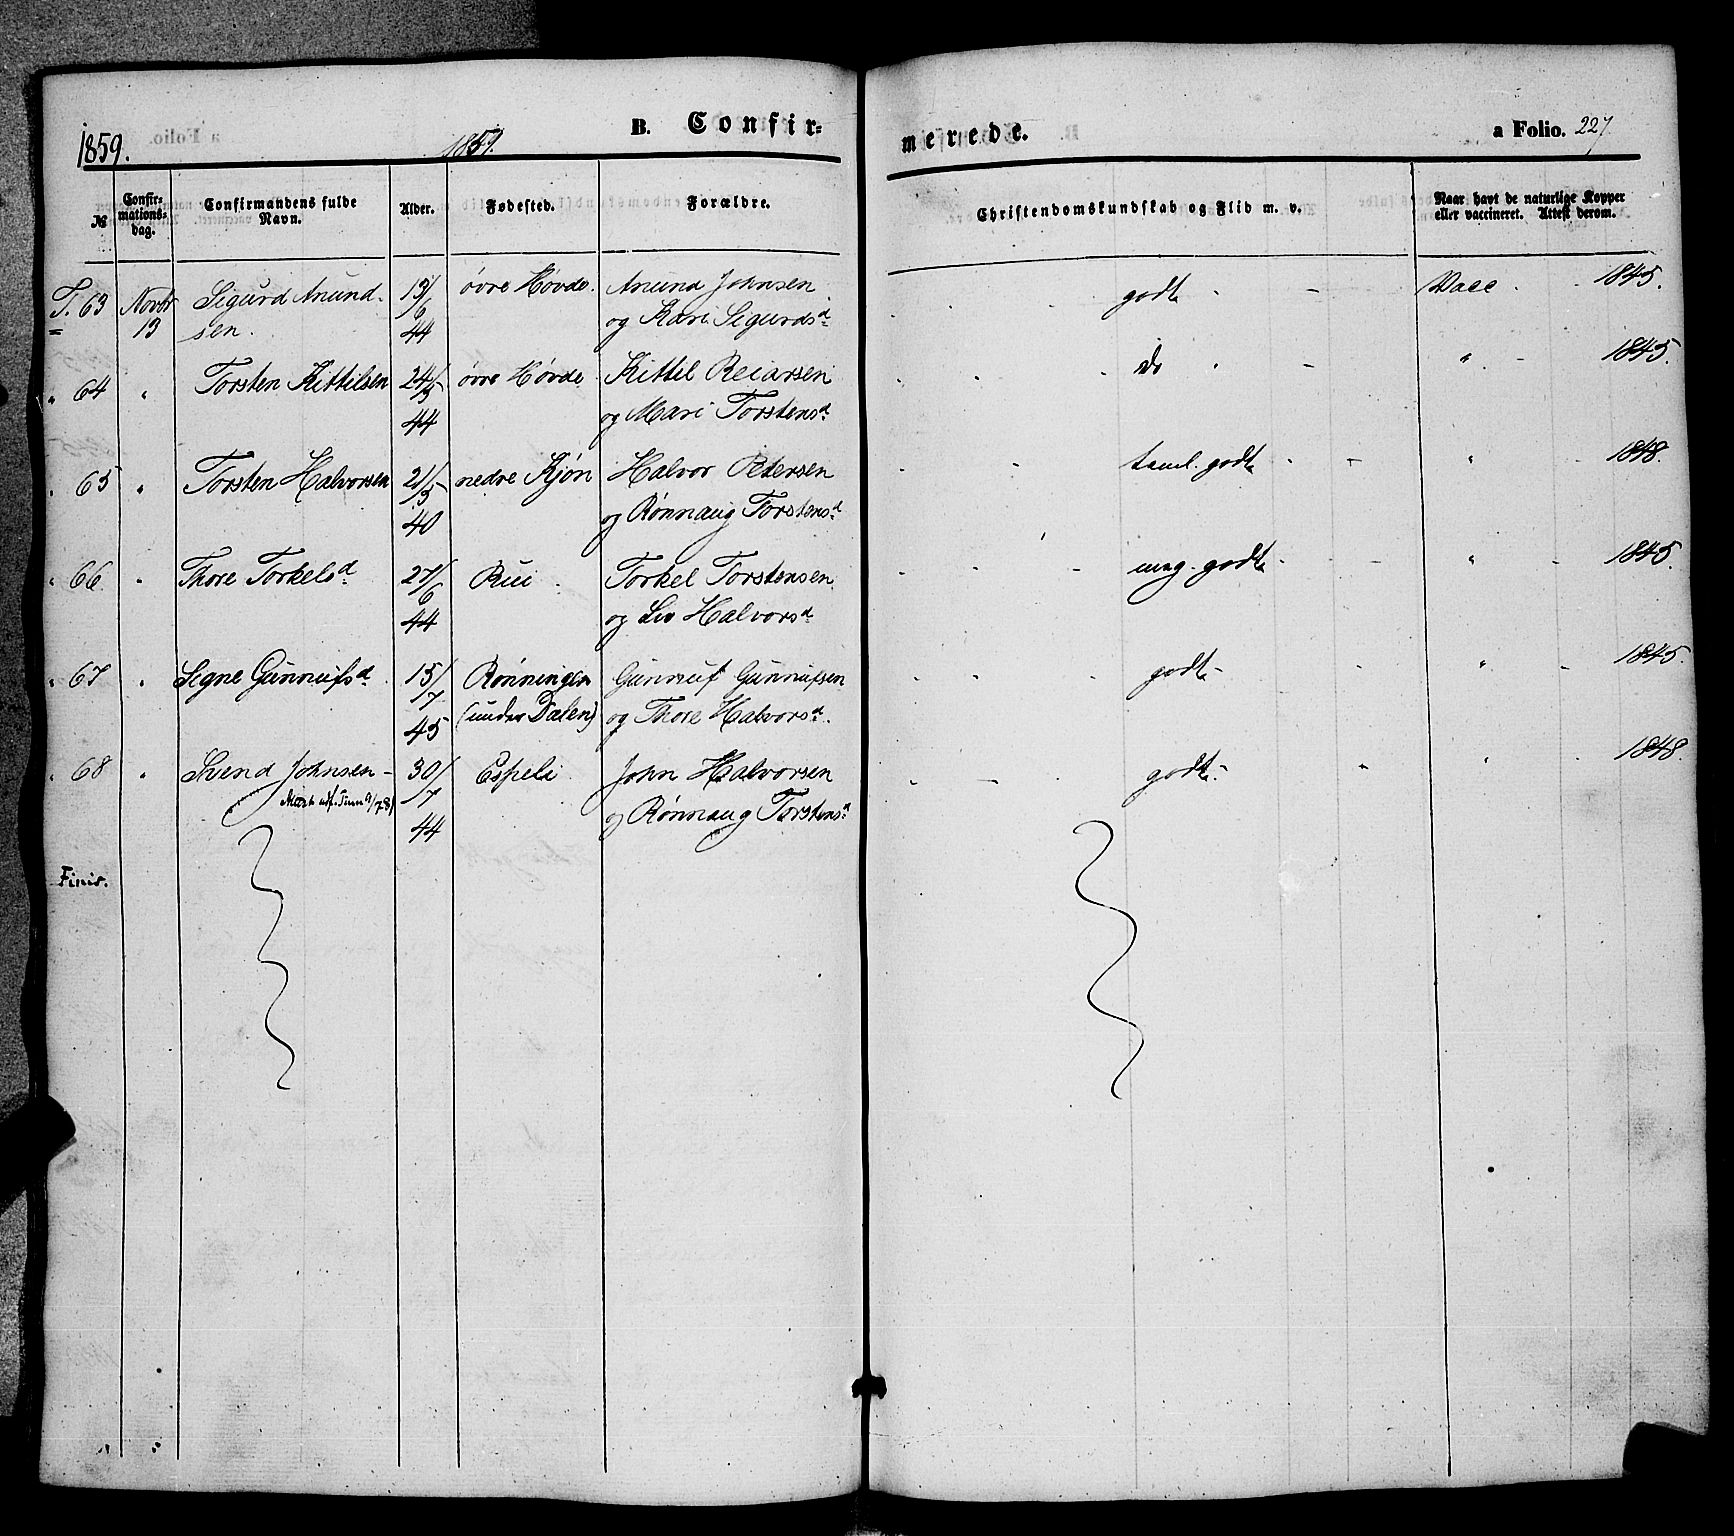 1859. 1859. B. Confir= merede. a Folio. 227.
№ Confir-mations-dag. Confirmandens fulde Navn. Alder. Fødested. Forældre. Christendomskundskab og Flid m. v. Naar havt de naturlige Kopper eller vaccineret. Attest derom.
T. 63 Novbr Sigurd Anund- 13/ øvre Høvde. Anund Johnsen godt - - Vacc. - 1845.
13 sen. 6 og Kari Sigurdsd.
44
" 64 " Torsten Kittilsen 24/5 øvre Høvde Kittil Reiarsen do - - " - 1845.
44 og Mari Torstensd.
" 65 " Torsten Halvorsen 21/5 nedre Kjøn Halvor Petersen taml. godt - - " 1848.
40 og Rønnaug Torstensd.
" 66. " Thore Torkelsd. 27/6 Rui Torkel Torstensen meg. godt - - " 1845.
44 og Liv Halvorsd.
" 67 " Signe Gunnufsd. 15/7 Rønningen Gunnuf Gunnufsen godt - " - 1845.
45 (under Dalen) og Thore Halvorsd.
" 68 " Svend Johnsen - 30/7 Espeli John Halvorsen godt. - " 1848.
44 og Rønnaug Torstensd.
Finis.